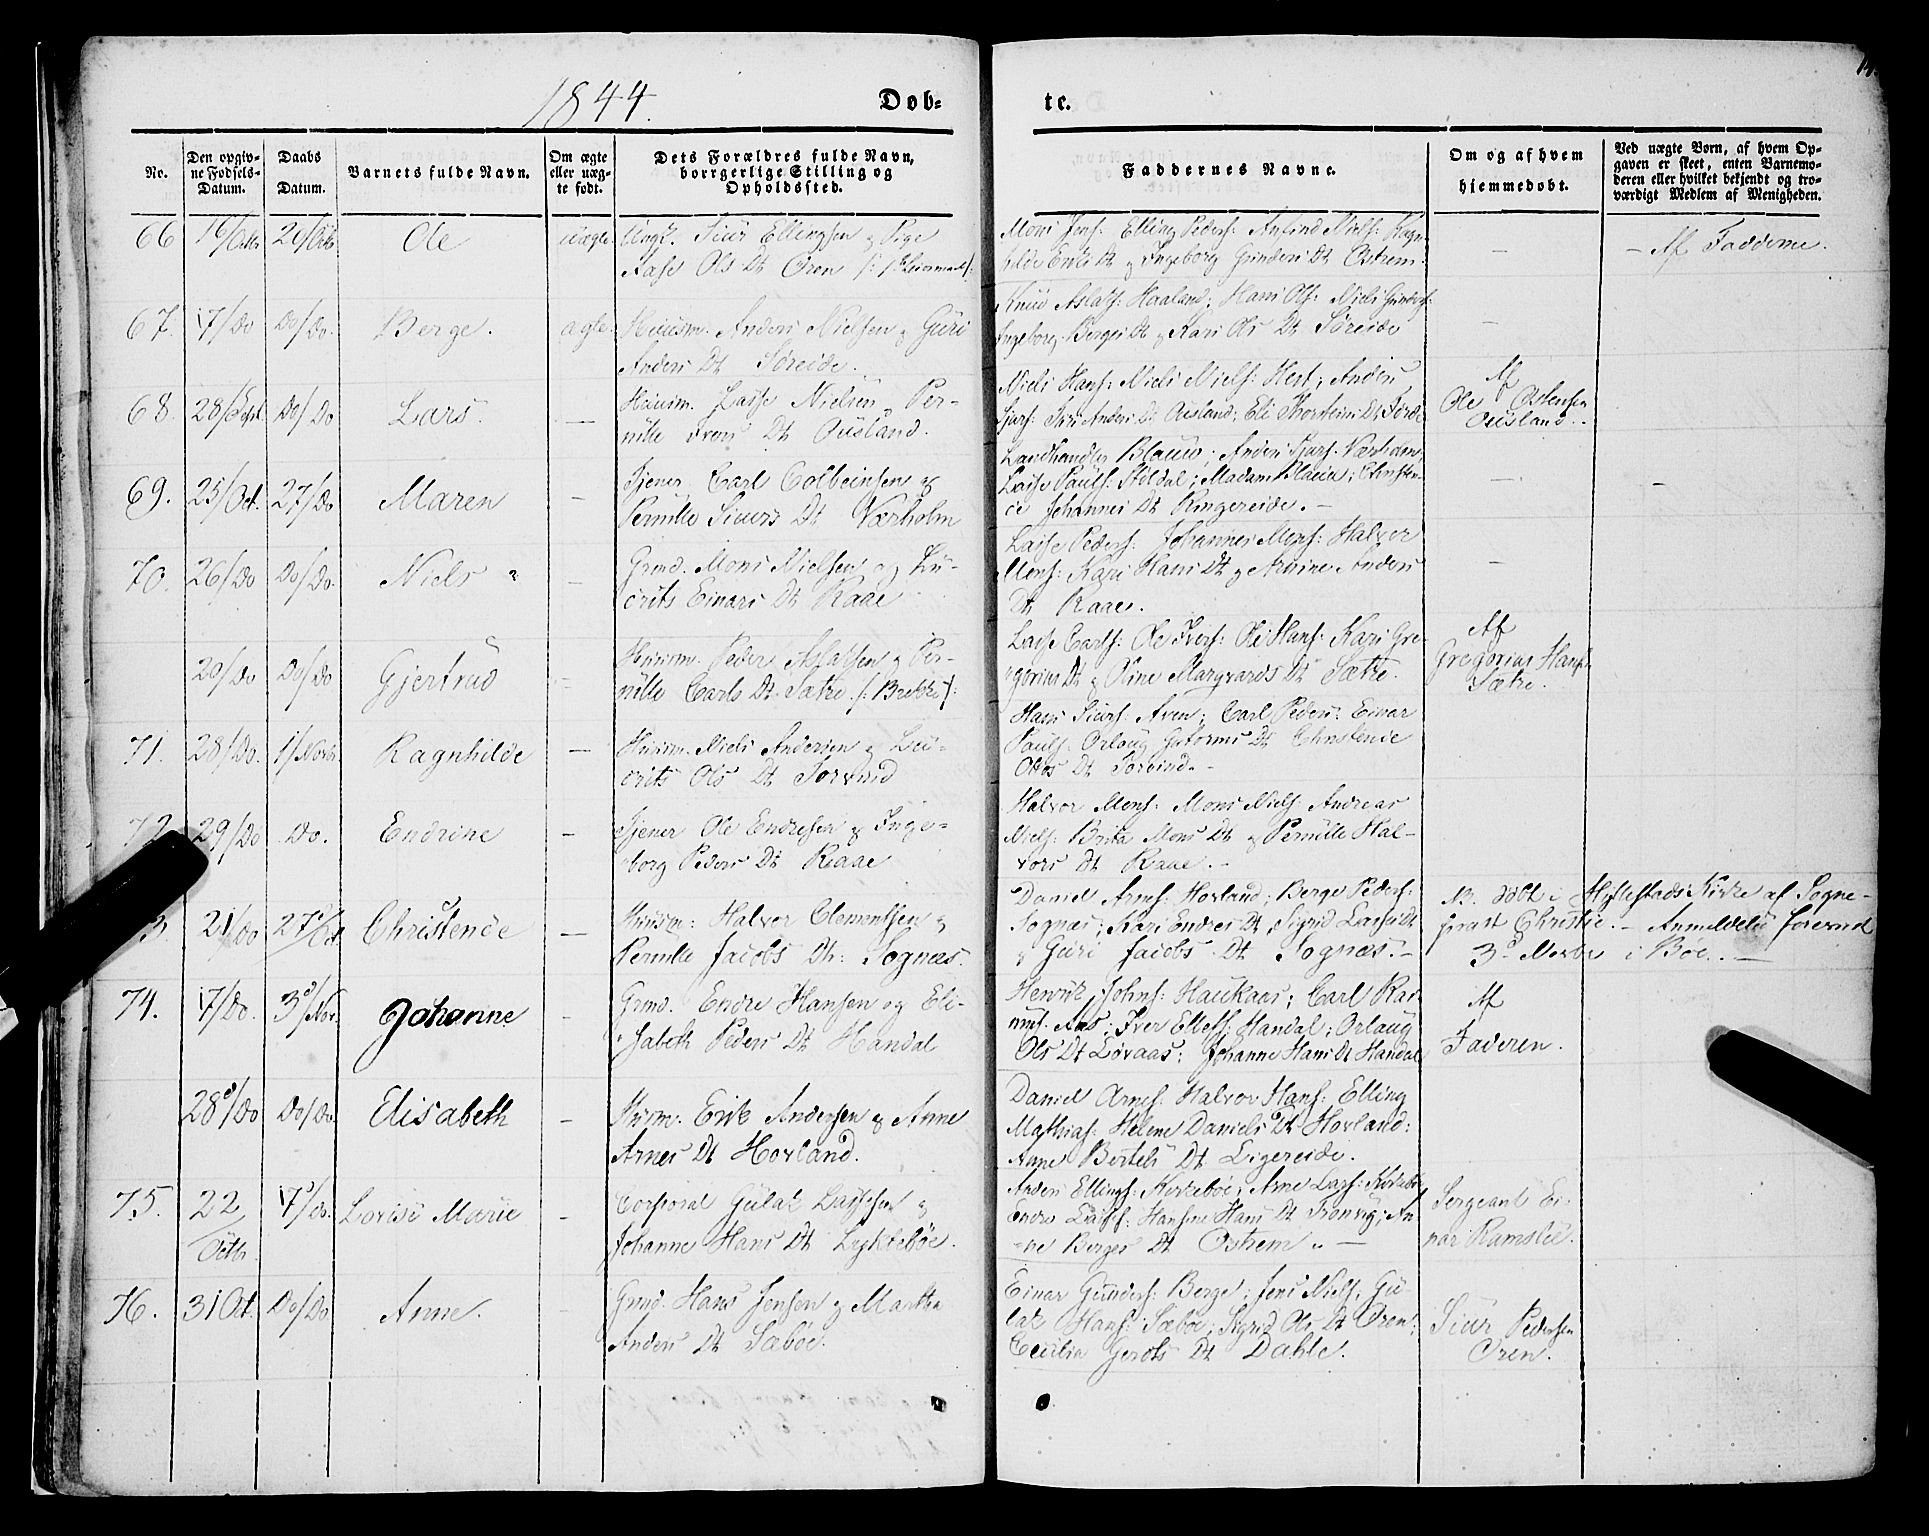 1844.
Døb-
te.
No.
Den opgiv-
ne Fødsels-
Datum.
Daabs
Datum.
Barnets fulde Navn.
Om ægte
eller uæg-
te født.
Dets Forældres fulde Navn,
borrgerlige Stilling og
Opholdssted.
Faddernes Navne.
Om og af hvem
hjemmedøbt.
Ved uægte Børn, af hvem Op-
gaven er skeet, enten Barnemo-
deren eller hvilket bekjendt og tro-
værdigt Medlem af Menigheden.
66 16/Octb 20/Octb Ole uægte Ungk. Siur Ellingsen & Pige
Aase Ols Dt Øren
Mons Jens: Elling Peders: Anfind Niels: Ragn-
hilde Eriks Dt & Ingeborg Gunders Dt Ostrem.
- Af Fadderne.
67. 17/Do Do/Do. Berge. ægte Huusm. Anders Nielsen & Guri
Anders Dt Søreide.
Knud Aslaks: Haaland; Hans Ols: Niels Gunders:
Ingeborg Berges Dt & Kari Ols Dt Søreide
68. 28/Sept. Do/Do Lars. Huusm. Lasse Nielsen Per-
nille Ivers Dt Ousland.
Niels Hans: Niels Niels: Hest; Anders
Anders Dt Ousland; Eli Thorsteins Dt Førde
Af
Ole Ostensen
Ousland.
69. 25/Oct. 27/Do Maren Tjener Carl Colbeinsen &
Pernille Siurs Dt Værholm
Landhandler Blauw; Anders Sjurs: Værholm;
Lasse Pauls: Stoldal; Madam Blauw; Christen-
ce Johannes Dt Ringereide.
70. 26/Do Do/Do. Niels Grmd. Mons Nielsen og Lu-
crits Einars Dt Raae
Lasse Peders: Johannes Mons: Halvor
Mons: Kari Hans Dt & Anders
Dt Raae.
20/Do Do/Do Gjertrud Huusm. Peder Aslaksen & Per-
nille Carls Dt. Sætre /: Brekke :/
Lasse Carls: Ole Ivers: Ole Hans: Kari Gre-
gorius Dt & Oline Margvards Dt Sætre.
Af
Gregorius Hans:
Sætre.
71. 28/Do. 1/Novb. Ragnhilde Huusm. Niels Andersen & Lu-
crits Ols Dt Torvund
Hans Siurs: Aven; Carl Peders: Einar
Pauls: Orlaug Guttorms Dt Christence
Ottos Dt Torvund.
72 29/Do Do. Endrine Tjener Ole Endresen & Inge-
borg Peders Dt Raae
Halvor Mons: Mons Niels Andreas
Niels: Brita Mons Dt & Pernille Hal-
vors Dt Raae.
3 21/Do 27/Oct Christence Huusm: Halvor Clementsen &
Pernille Jacobs Dt: Sognæs.
Daniel Arnes: Hovland; Berge Peders:
Sognæs; Kari Endres Dt, Sigrid Lasse Dt
& Guri Jacobs Dt Sognæs.
NB. døbt i Hyllestads Kirke af Sogne-
præst Christie. - Anmeldelse foreviist
3. Novbr i Bøe.
74. 17/Do. 3/Nov. Johanne Grmd. Endre Hansen og Eli-
sabeth Peders Dt Handal
Henrik Johns: Haukaas; Carl Ras-
mus. Aas; Iver Ellefs: Handal; Orlaug
Ols Dt Løvaas; Johanne Hans Dt Handal
Af
Faderen.
28/Do Do/Do. Elisabeth Huusm. Erik Andersen & Anne
Arnes Dt Hovland.
Daniel Arnes: Halvor Hans: Elling
Mathias: Helene Daniels Dt Hovland:
Anne Bertels Dt Eigereide.
75. 22 17/do. Lovise Marie Corporal Gulak Lassesen &
Octb. Johanne Hans Dt Lyktebøe.
Anders Ellings: Kirkebøe; Arne Lars: Kirkebø
Endre Lasses: Hansine Hans Dt Tronvig; An-
ne Berges Dt Ostrem
Sergeant Ei-
nar Ramslie.
76. 31 Oct. Do/Do Anne. Grmd. Hans Jensen & Martha
Anders Dt Sæbøe.
Einar Gunders: Berge; Jens Niels, Gu-
lak Hans: Sæbøe; Sigrid Ols Dt Øren;
Cecilia Gerots Dt Dahle.
Siur Pedersen
Øren.